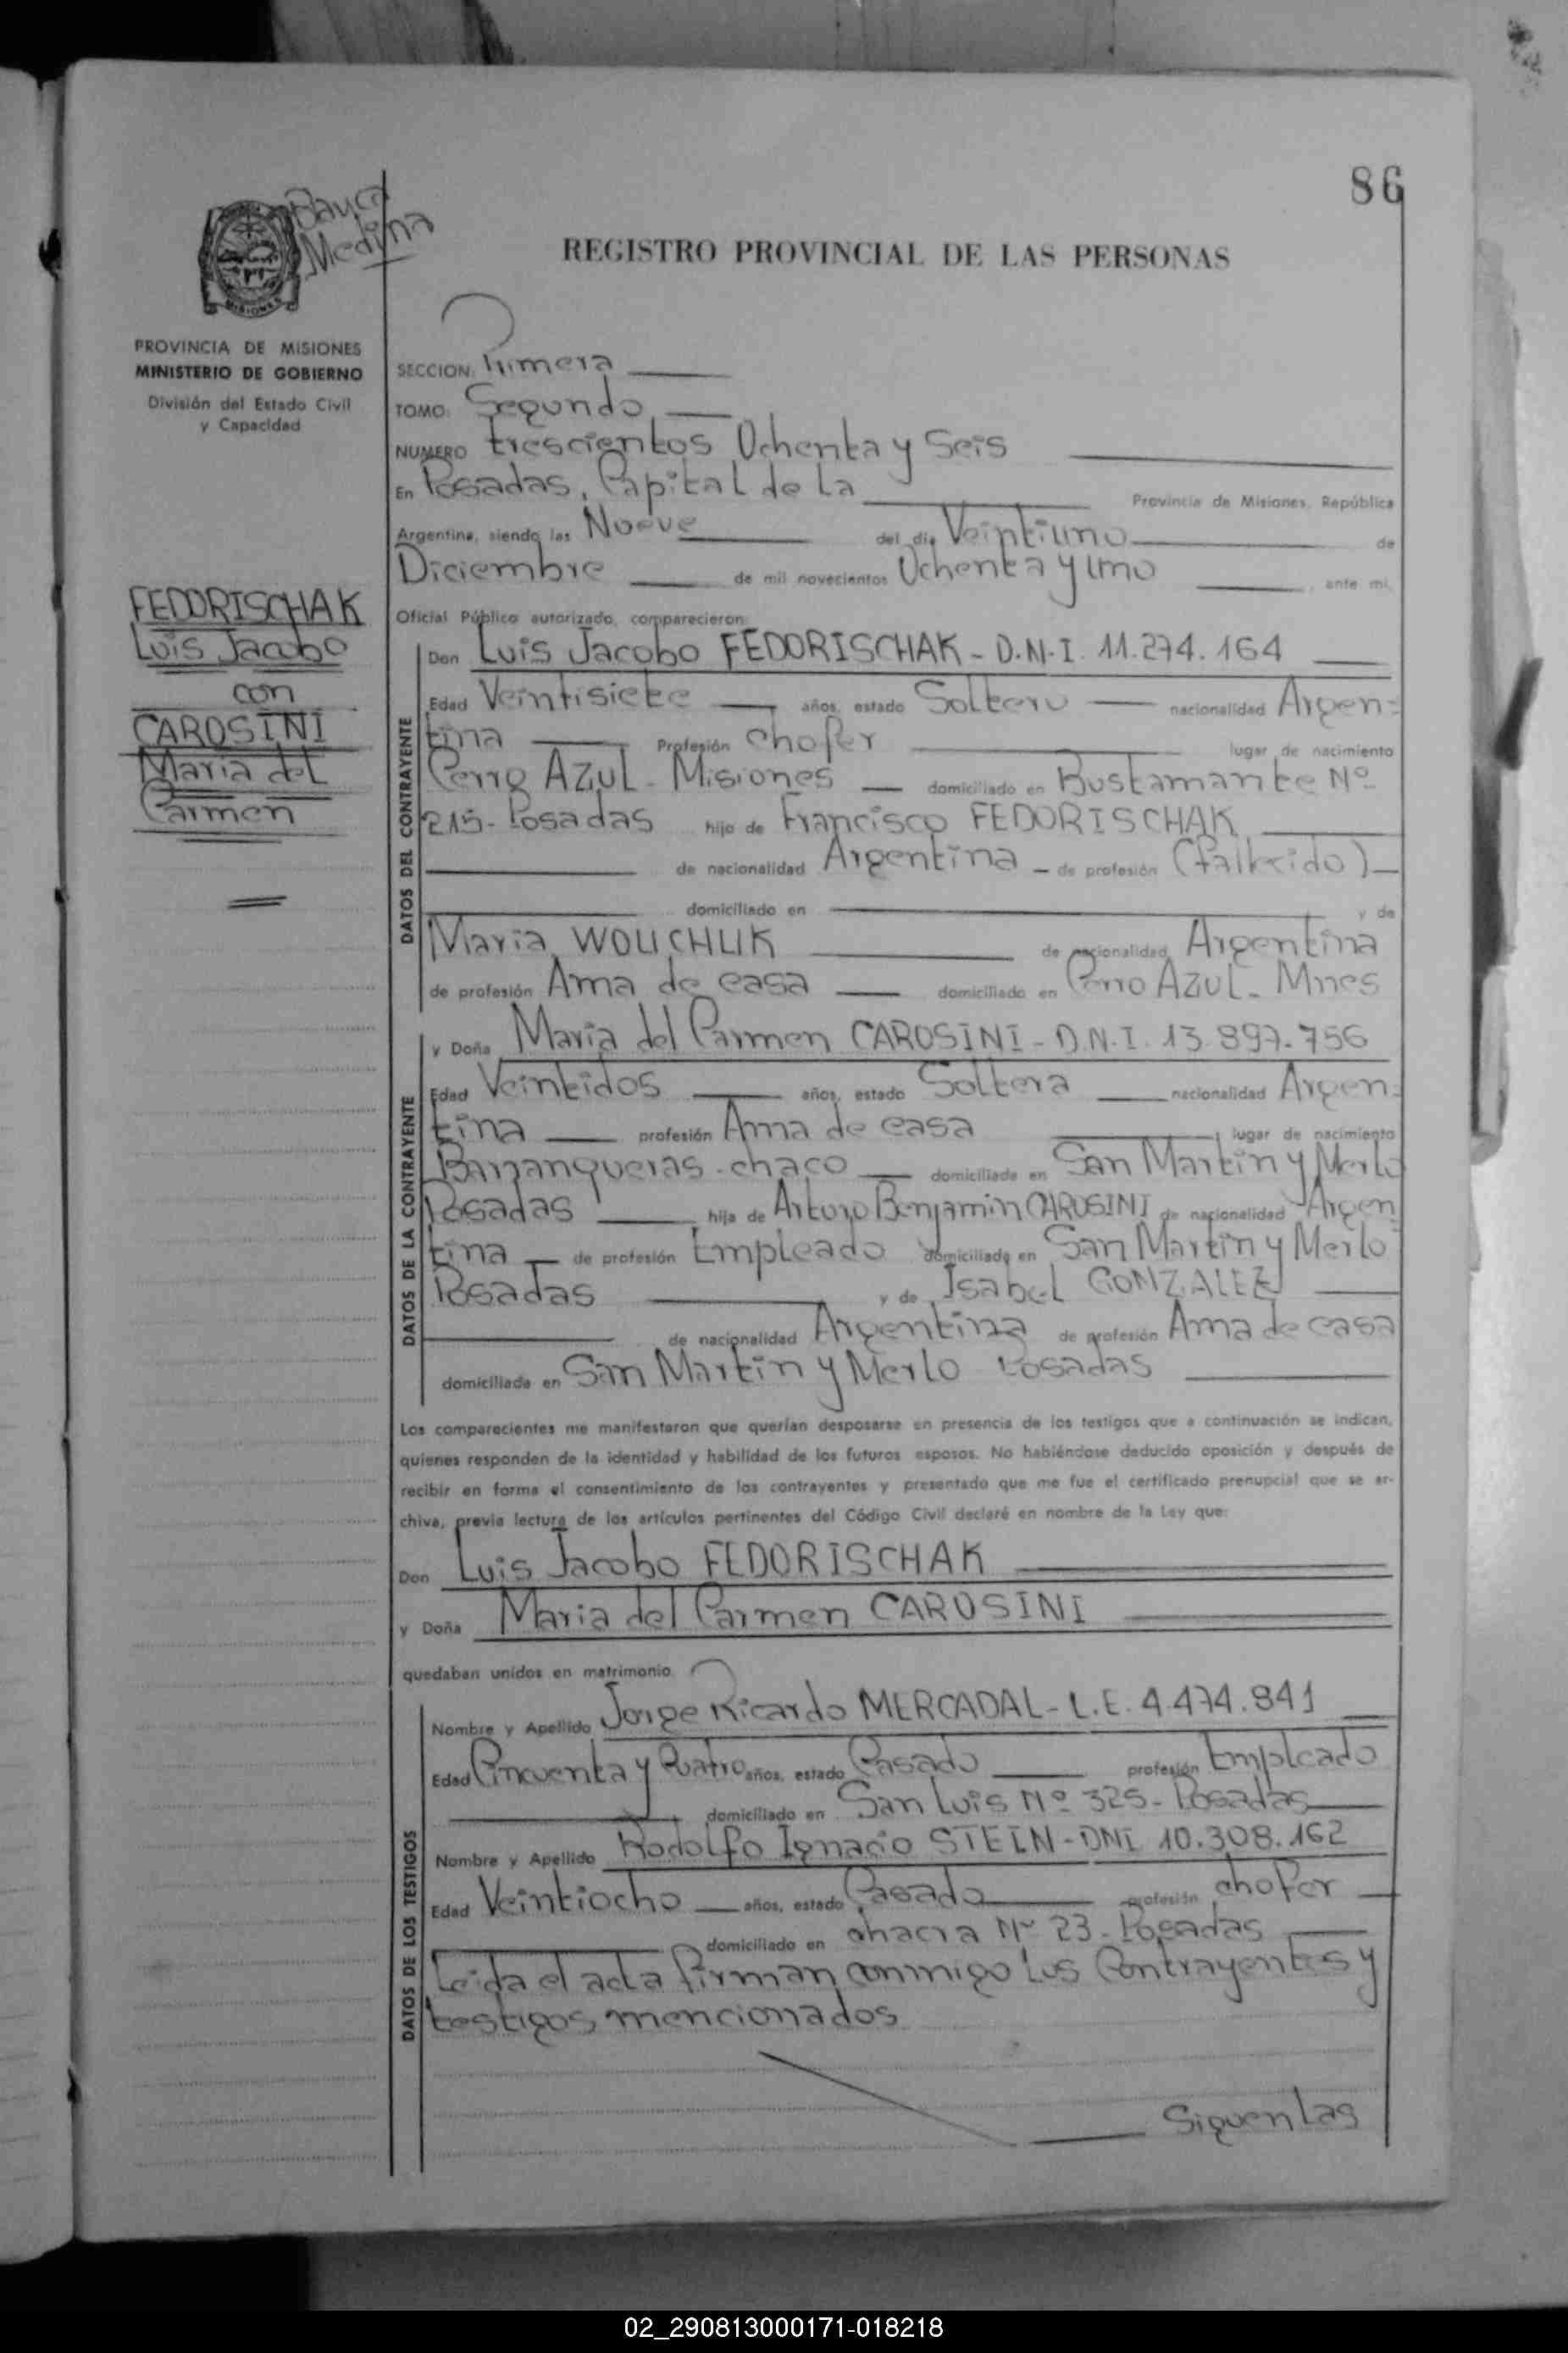 86
Bauca
Medina
MISIONES
REGISTRO PROVINCIAL DE LAS PERSONAS
PROVINCIA DE MISIONES
MINISTERIO DE GOBIERNO
División del Estado Civil
y Capacidad
SECCION: Primera
TOMO: Segundo
NUMERO trescientos Ochenta y Seis
En Posadas, Capital de La Provincia de Misiones, República
Argentina, siendo las Nueve del día Veintiuno de
Diciembre de mil novecientos Ochenta y uno, ante mí,
Oficial Público autorizado, comparecieron:
FEDORISCHAK
Luis Jacobo
con
CAROSINI
Maria del
Carmen
DATOS DEL CONTRAYENTE
Don Luis Jacobo FEDORISCHAK - D.N.I. 11.274.164
Edad Veintisiete años, estado Soltero nacionalidad Argen=
tina Profesión chofer lugar de nacimiento
Cerro AZUL - Misiones domiciliado en Bustamante Nº
215 - Posadas hijo de Francisco FEDORISCHAK
de nacionalidad Argentina de profesión (Fallecido)
domiciliado en y de
Maria WOUCHUK de nacionalidad Argentina
de profesión Ama de casa domiciliada en Cerro AZUL - Mnes
DATOS DE LA CONTRAYENTE
y Doña Maria del Carmen CAROSINI - D.N.I. 13.897.756
Edad Veintidos años, estado Soltera nacionalidad Argen=
tina profesión Ama de casa lugar de nacimiento
Barranqueras - chaco domiciliada en San Martin y Merlo
Posadas hija de Arturo Benjamin CAROSINI de nacionalidad Argen=
tina de profesión Empleado domiciliado en San Martin y Merlo
Posadas y de Isabel GONZALEZ
de nacionalidad Argentina de profesión Ama de casa
domiciliada en San Martin y Merlo Posadas
Los comparecientes me manifestaron que querían desposarse en presencia de los testigos que a continuación se indican,
quienes responden de la identidad y habilidad de los futuros esposos. No habiéndose deducido oposición y después de
recibir en forma el consentimiento de los contrayentes y presentado que me fue el certificado prenupcial que se ar-
chiva, previa lectura de los artículos pertinentes del Código Civil declaré en nombre de la Ley que:
Don Luis Jacobo FEDORISCHAK
y Doña Maria del Carmen CAROSINI
quedaban unidos en matrimonio.
DATOS DE LOS TESTIGOS
Nombre y Apellido Jorge Ricardo MERCADAL - L.E. 4.474.841
Edad Cincuenta y Cuatro años, estado Casado profesión Empleado
domiciliado en San Luis Nº 325 - Posadas
Nombre y Apellido Rodolfo Ignacio STEIN - DNI 10.308.162
Edad Veintiocho años, estado Casado profesión chofer
domiciliado en chacra Nº 23 - Posadas
Leida el acta firman conmigo Los Contrayentes y
testigos mencionados
Siguen Las
02_290813000171-018218